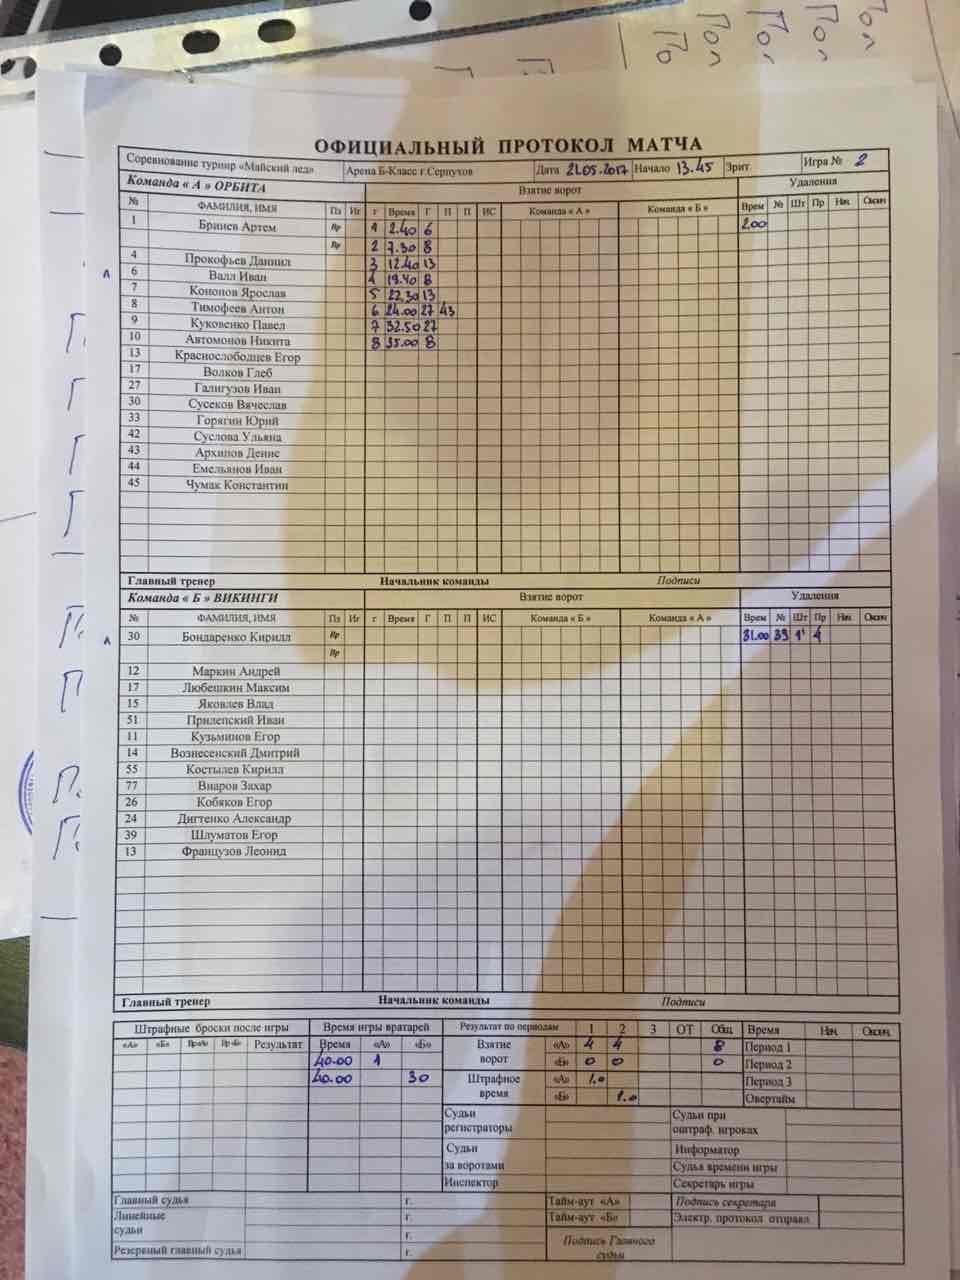 ОФИЦИАЛЬНЫЙ ПРОТОКОЛ МАТЧА
Соревнование турнир «Майский лед» Арена Б-Класс г.Серпухов Дата 21.05.2017 Начало 13.45 Зрит. Игра № 2
Команда « А » ОРБИТА Взятие ворот Удаления
№ ФАМИЛИЯ, ИМЯ Пз Иг г Время Г П П ИС Команда « А » Команда « Б » Врем № Шт Пр Нач Оконч
1 Бринев Артем Вр 1 2.40 6 2.00
Вр 2 7.30 8
4 Прокофьев Даниил 3 12.40 13
6 Валл Иван 4 19.40 8
7 Кононов Ярослав 5 22.30 13
8 Тимофеев Антон 6 24.00 27 43
9 Куковенко Павел 7 32.50 27
10 Автомонов Никита 8 35.00 8
13 Краснослободцев Егор
17 Волков Глеб
27 Галигузов Иван
30 Сусеков Вячеслав
33 Горягин Юрий
42 Суслова Ульяна
43 Архипов Денис
44 Емельянов Иван
45 Чумак Константин
Главный тренер Начальник команды Подписи
Команда « Б » ВИКИНГИ Взятие ворот Удаления
№ ФАМИЛИЯ, ИМЯ Пз Иг г Время Г П П ИС Команда « Б » Команда « А » Врем № Шт Пр Нач Оконч
30 Бондаренко Кирилл Вр 31.00 39 1' 4
Вр
12 Маркин Андрей
17 Любешкин Максим
15 Яковлев Влад
51 Прилепский Иван
11 Кузьминов Егор
14 Вознесенский Дмитрий
55 Костылев Кирилл
77 Виаров Захар
26 Кобяков Егор
24 Дигтенко Александр
39 Шлуматов Егор
13 Французов Леонид
Главный тренер Начальник команды Подписи
Штрафные броски после игры Время игры вратарей Результат по периодам 1 2 3 ОТ Общ Время Нач. Оконч.
«А» «Б» Вр«А» Вр«Б» Результат Время «А» «Б» Взятие ворот «А» 4 4 8 Период 1
40.00 1 «Б» 0 0 0 Период 2
40.00 30 Штрафное время «А» 1.0 Период 3
«Б» 1.0 Овертайм
Судьи регистраторы Судьи при оштраф. игроках
Судьи за воротами Информатор
Судья времени игры
Инспектор Секретарь игры
Главный судья г. Тайм-аут «А» Подпись секретаря
Линейные судьи г. Тайм-аут «Б» Электр. протокол отправл.
г. Подпись Главного судьи
Резервный главный судья г.